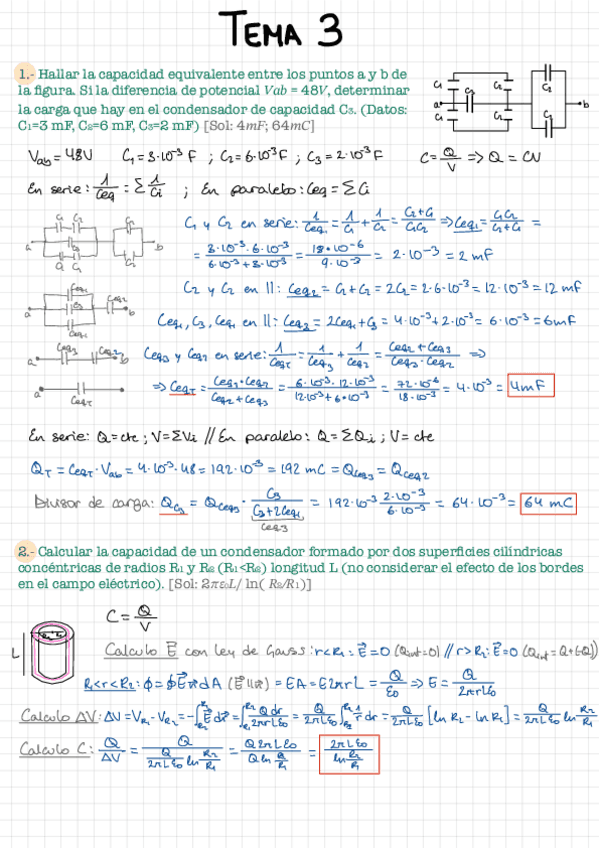 TEMA 3
1.- Hallar la capacidad equivalente entre los puntos a y b de
la figura. Si la diferencia de potencial Vab = 48V, determinar
la carga que hay en el condensador de capacidad C₃. (Datos:
C₁=3 mF, C₂=6 mF, C₃=2 mF) [Sol: 4mF; 64mC]
V_ab = 48V C₁ = 3·10⁻³ F ; C₂ = 6·10⁻³ F ; C₃ = 2·10⁻³ F C = Q/V => Q = CV
En serie: 1/Ceq = Σ 1/Ci ; En paralelo: Ceq = ΣCi
C₁ y C₂ en serie: 1/Ceq₁ = 1/C₁ + 1/C₂ = (C₂+C₁)/(C₁C₂) => Ceq₁ = C₁C₂/(C₁+C₂) =
= (3·10⁻³·6·10⁻³)/(6·10⁻³+3·10⁻³) = (18·10⁻⁶)/(9·10⁻³) = 2·10⁻³ = 2 mF
C₂ y C₂ en II: Ceq₂ = C₂+C₂ = 2C₂ = 2·6·10⁻³ = 12·10⁻³ = 12 mF
Ceq₁, C₃, Ceq₁ en II: Ceq₃ = 2Ceq₁+C₃ = 4·10⁻³+2·10⁻³ = 6·10⁻³ = 6mF
Ceq₃ y Ceq₂ en serie: 1/Ceq_T = 1/Ceq₃ + 1/Ceq₂ = (Ceq₂+Ceq₃)/(Ceq₃·Ceq₂) =>
=> Ceq_T = (Ceq₃·Ceq₂)/(Ceq₂+Ceq₃) = (6·10⁻³·12·10⁻³)/(12·10⁻³+6·10⁻³) = (72·10⁻⁶)/(18·10⁻³) = 4·10⁻³ = 4mF
En serie: Q = cte ; V = ΣVi // En paralelo: Q = ΣQi ; V = cte
Q_T = Ceq_T·V_ab = 4·10⁻³·48 = 192·10⁻³ = 192 mC = Q_Ceq₃ = Q_Ceq₂
Divisor de carga: Q_C₃ = Q_Ceq₃ · C₃/(C₃+2Ceq₁) = 192·10⁻³ (2·10⁻³)/(6·10⁻³) = 64·10⁻³ = 64 mC
Ceq₃
2.- Calcular la capacidad de un condensador formado por dos superficies cilíndricas
concéntricas de radios R₁ y R₂ (R₁<R₂) longitud L (no considerar el efecto de los bordes
en el campo eléctrico). [Sol: 2πε₀L/ ln( R₂/R₁)]
C = Q/V
L
Calculo E con ley de Gauss: r<R₁: E=0 (Qint=0) // r>R₂: E=0 (Qint=Q+(-Q))
R₁<r<R₂: ϕ = ∮E dA = EA = E2πrL = Q/ε₀ => E = Q/(2πrLε₀)
Calculo ΔV: ΔV = V_R₁ - V_R₂ = -∫E dr = ∫ Q dr/(2πrLε₀) = Q/(2πLε₀) ∫ 1/r dr = Q/(2πLε₀) [ln R₂ - ln R₁] = Q/(2πLε₀) ln R₂/R₁
Calculo C: Q/ΔV = Q/(Q/(2πLε₀) ln R₂/R₁) = (Q2πLε₀)/(Q ln R₂/R₁) = (2πLε₀)/(ln R₂/R₁)